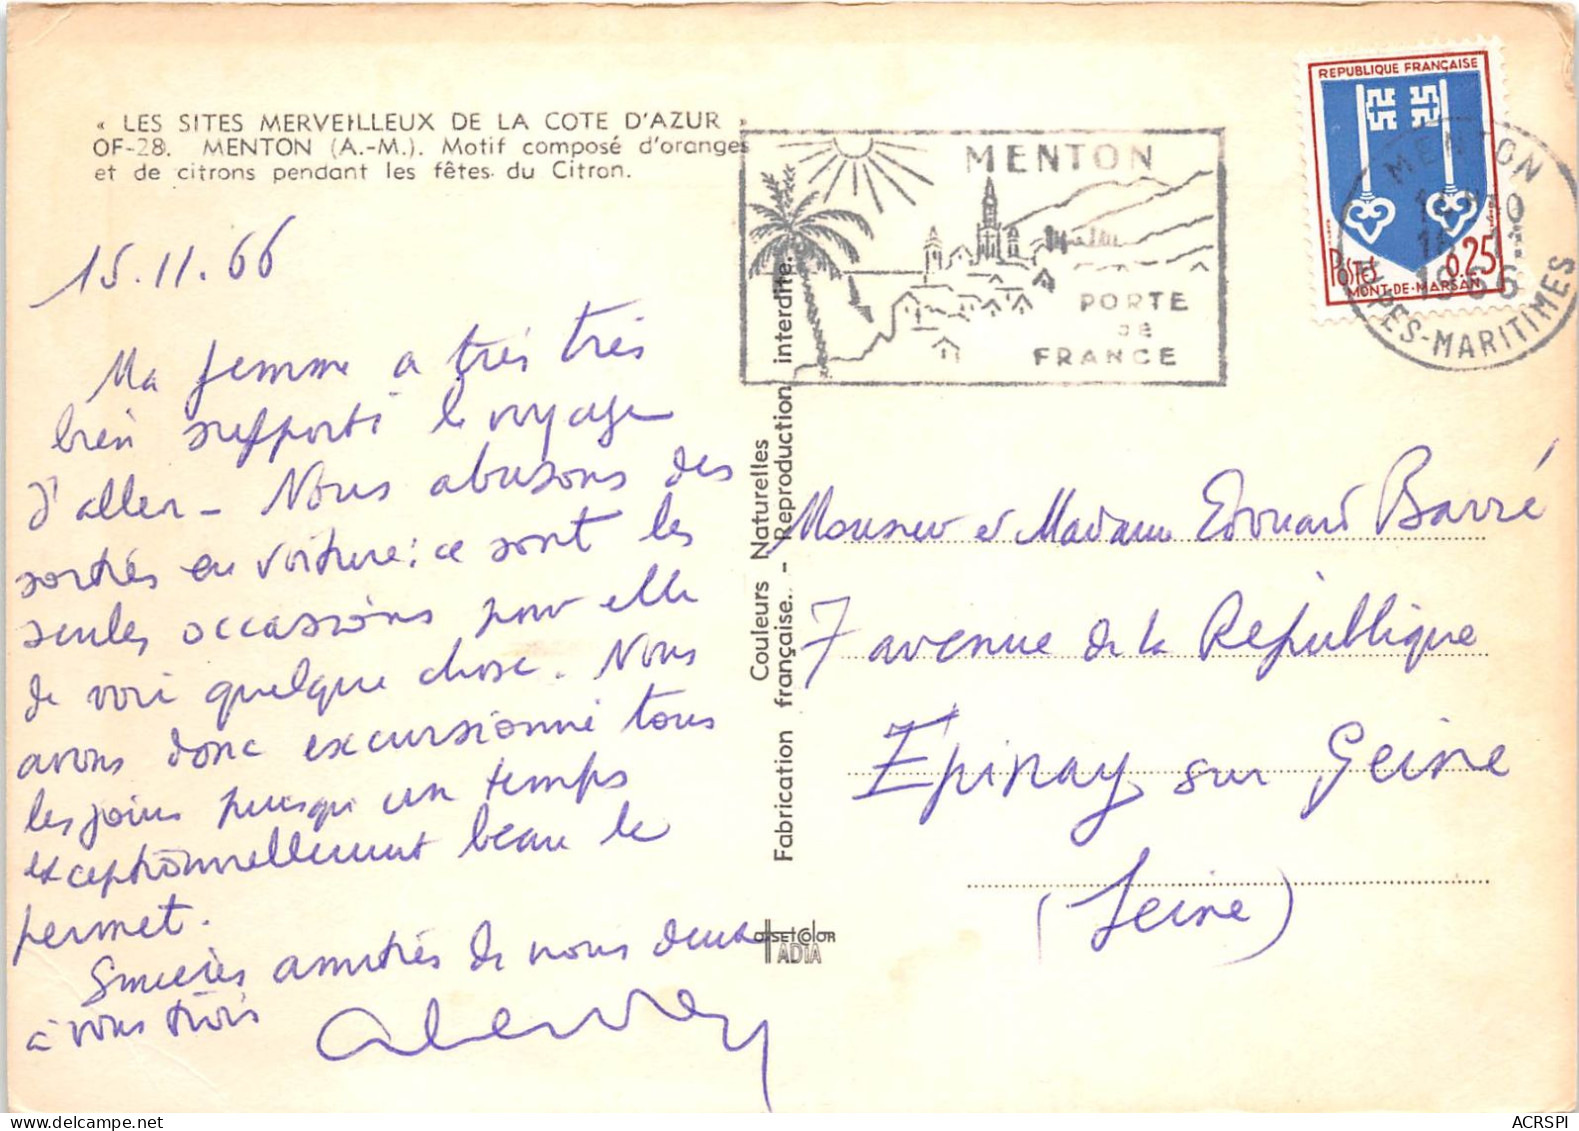 « LES SITES MERVEILLEUX DE LA COTE D'AZUR »
OF-28. MENTON (A.-M.). Motif composé d'oranges
et de citrons pendant les fêtes du Citron.
15.11.66
Ma femme a très très
bien supporté le voyage
d'aller - Nous abusons des
sorties en voiture : ce sont les
seules occasions pour elle
de voir quelque chose. Nous
avons donc excursionné tous
les jours puisqu'un temps
exceptionnellement beau le
permet.
Sincères amitiés de nous deux
à vous trois
MENTON
PORTE
DE
FRANCE
REPUBLIQUE FRANÇAISE
POSTES
0,25
MONT-DE-MARSAN
MENTON
1966
ALPES-MARITIMES
Couleurs Naturelles
Fabrication française. - Reproduction interdite.
Monsieur et Madame Edouard Barré
7 avenue de la République
Epinay sur Seine
(Seine)
OFFSETCOLOR
ADIA
ACRSPI